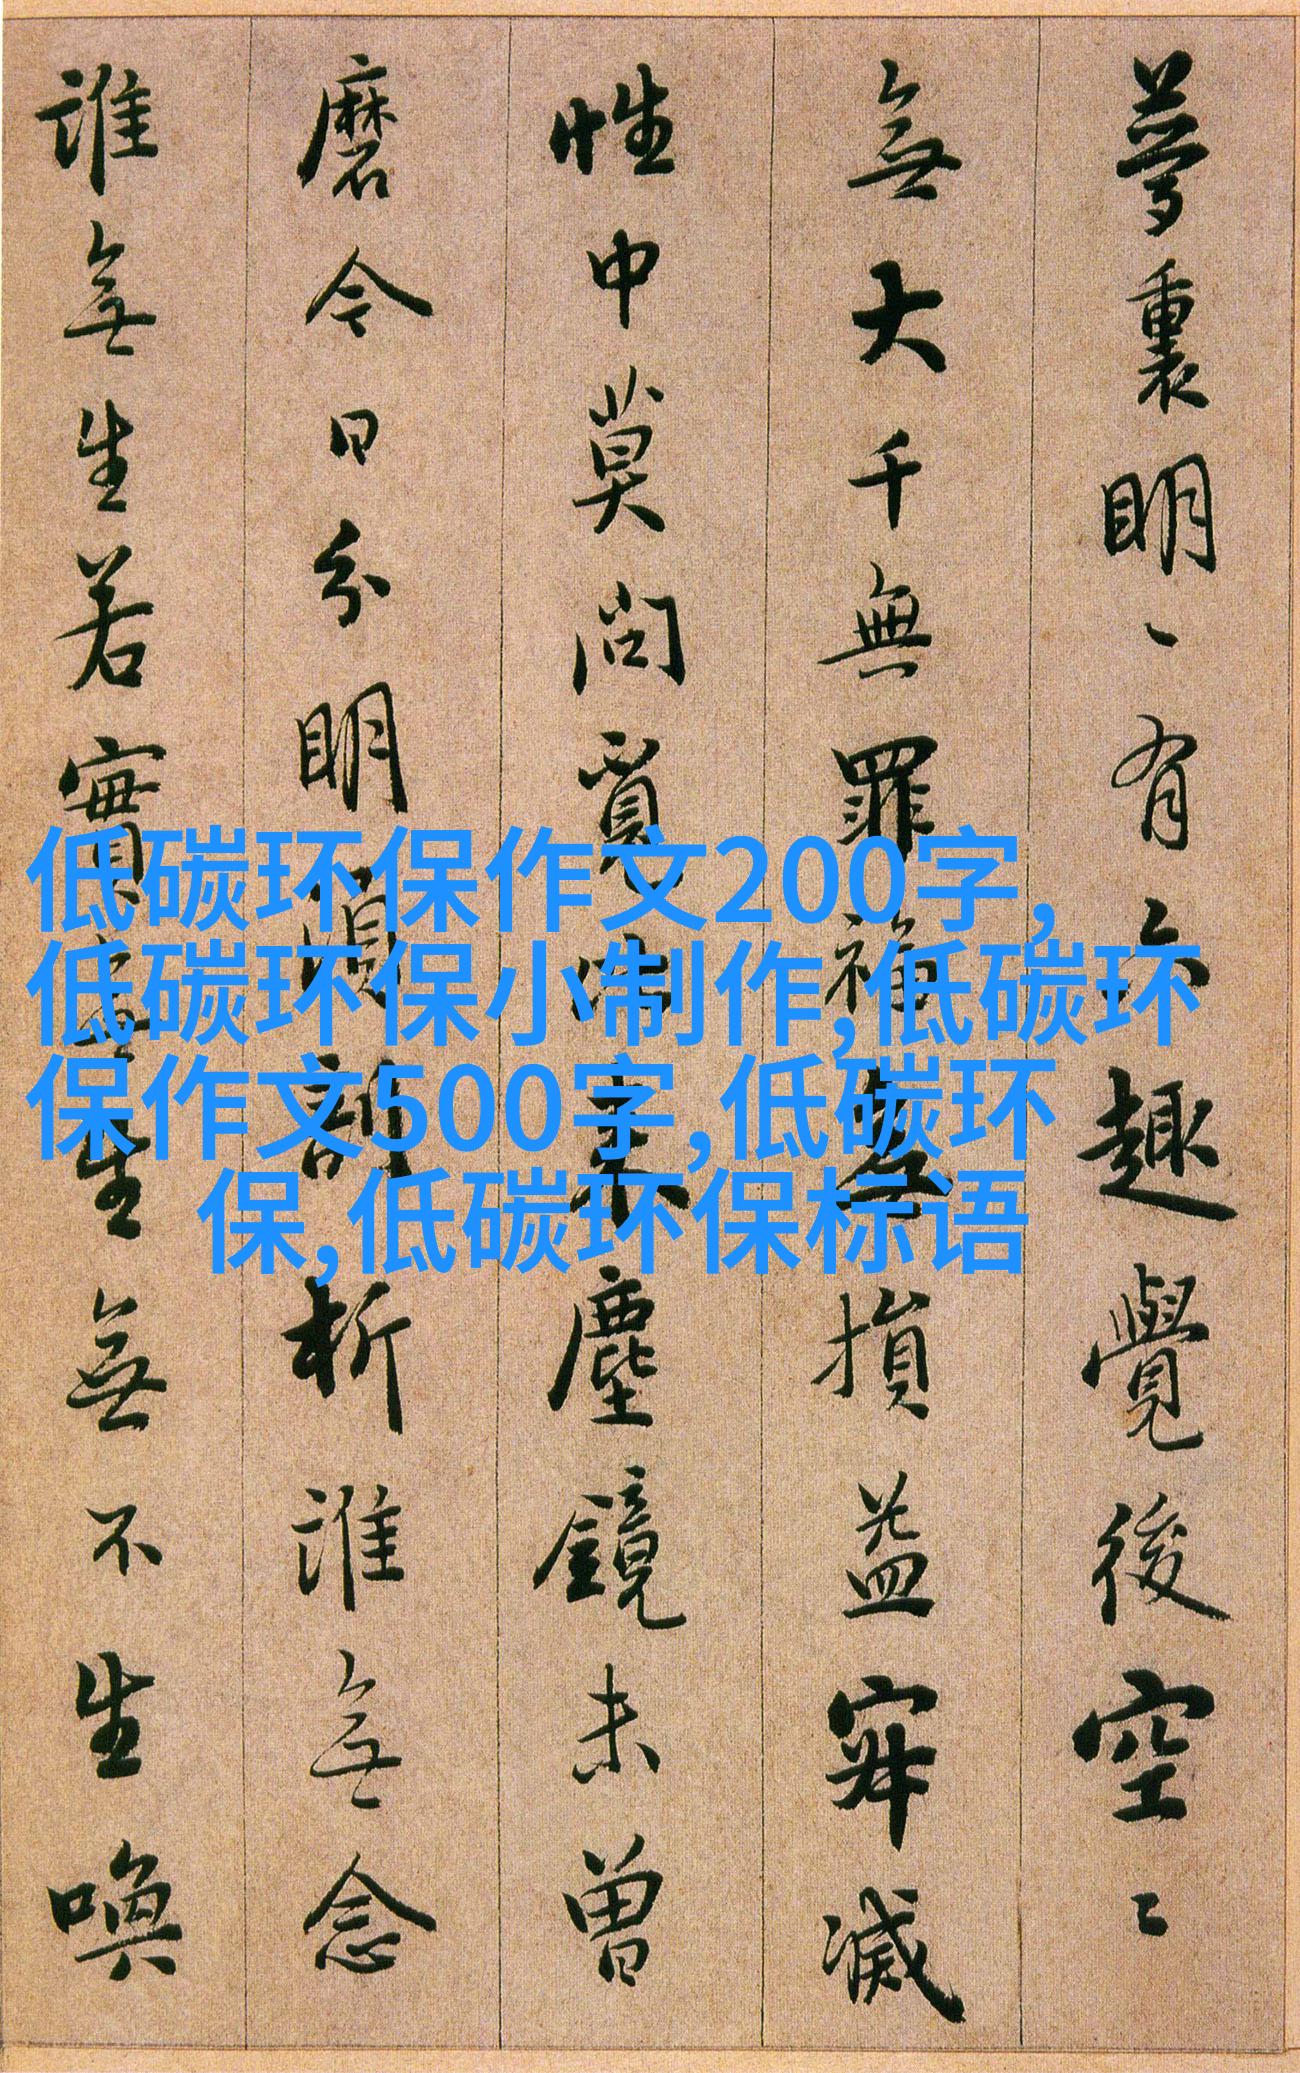 夢裏明々有六趣覺後空々
無大千無罪福無損益寂滅
性中莫問覓比來塵鏡未曾
磨今日分明須剖析誰無念
誰無生若實無生無不生喚
低碳环保作文200字,
低碳环保小制作,低碳环
保作文500字,低碳环
保,低碳环保标语